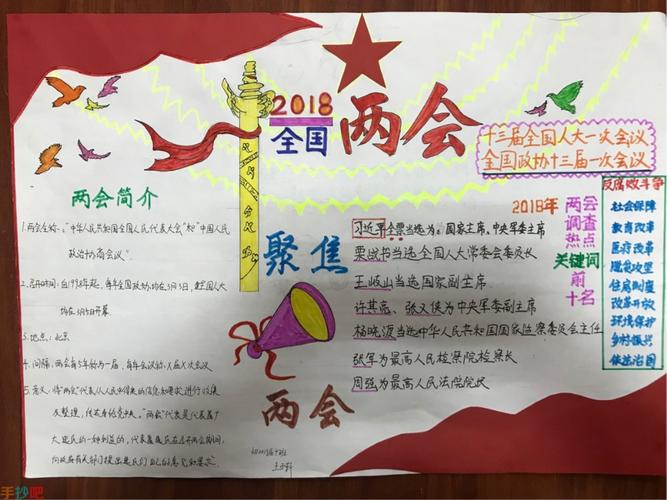 2018
全国
两会
十三届全国人大一次会议
全国政协十三届一次会议
两会简介
1.两会全称:"中华人民共和国全国人民代表大会"和"中国人民
政治协商会议"。
2.召开时间:自
年起,每年全国政协均在3月3日,
全国人大
均在3月5日开幕
3.地点:北京
4.间隔:两会每5年称为一届,每年会议称X届X次会议
5.意义:将"两会"代表从人民中得来的信息和要求进行收集
及整理,传达给党中央。"两会"代表是代表着广
大选民的一种利益的,代表着选民在召开两会期间,
向政府有关部门提出选民们自己的意见和要求。
聚焦
两会
2018年
习近平全票当选为:国家主席、中央军委主席
栗战书当选全国人大常委会委员长
王岐山当选国家副主席
许其亮、张又侠为中央军委副主席
杨晓渡当选中华人民共和国国家监察委员会主任
张军为最高人民检察院检察长
周强为最高人民法院院长
两会
调查
热点
关键词
前
十名
反腐败斗争
社会保障
教育改革
医疗改革
脱贫攻坚
住房制度
改革开放
环境保护
乡村振兴
依法治国
手抄吧